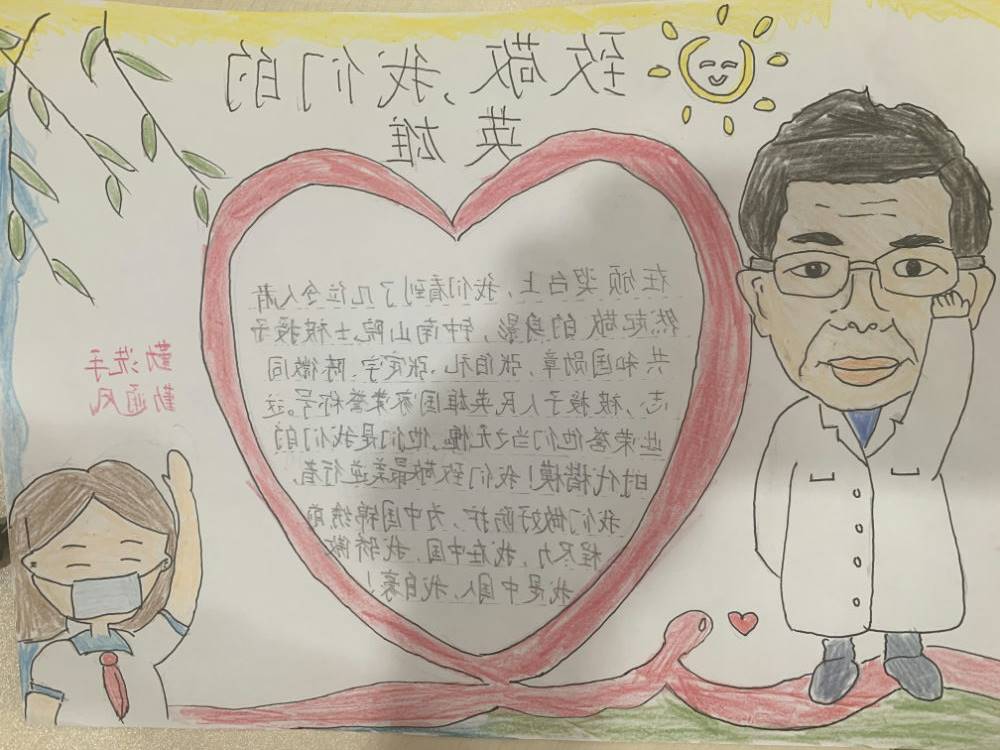 致敬,我们的
英雄
在颁奖台上，我们看到了几位令人肃
然起敬的身影，钟南山院士被授予
共和国勋章、张伯礼、张定宇、陈微同
志，被授予人民英雄国家荣誉称号。这
些荣誉他们当之无愧，他们是我们的
时代楷模！我们致敬最美逆行者，
我们做好防护，为中国锦绣前
程尽力，我在中国，我骄傲
我是中国人，我自豪！
勤洗手
勤通风